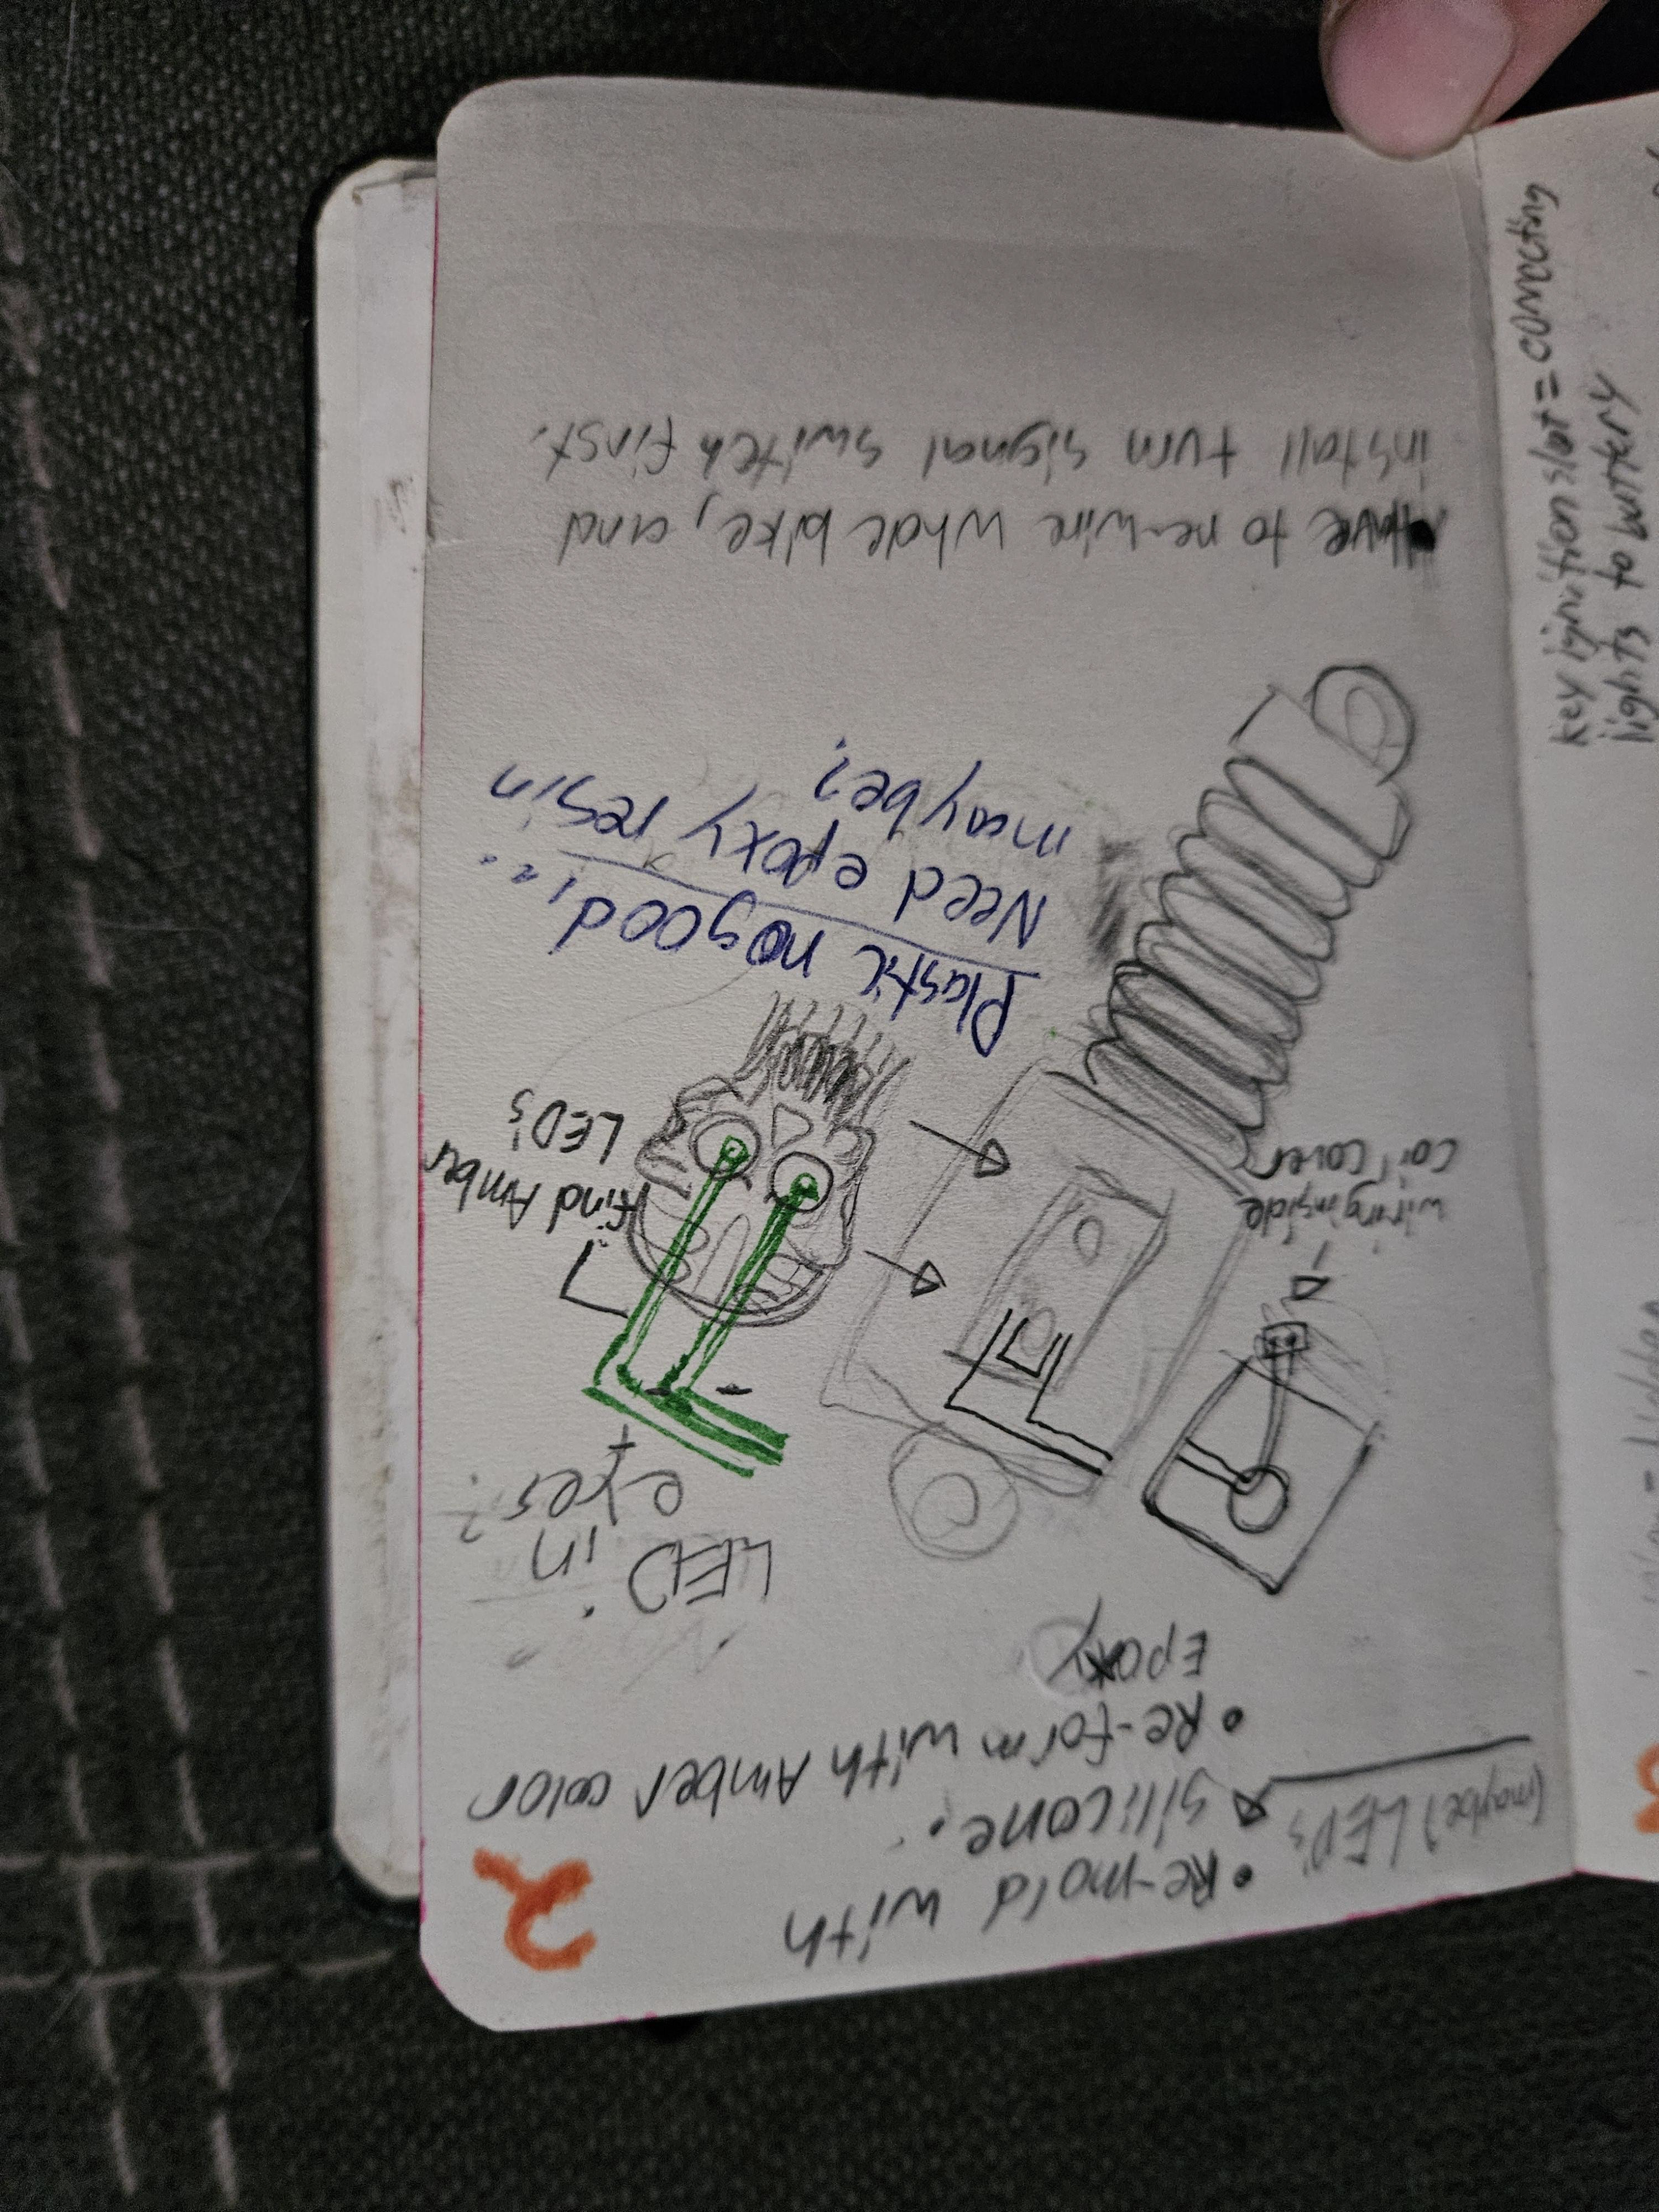 2
• Re-mold with
silicone.
• Re-form with Amber color
Epoxy
(maybe) LED's
LED in
eyes?
+
-
Find Amber
LED's
wiring inside
coil cover
Plastic no good,
Need epoxy resin
maybe?
• Have to re-wire whole bike, and
install turn signal switch first.
key ignition slot = connecting
lights to battery